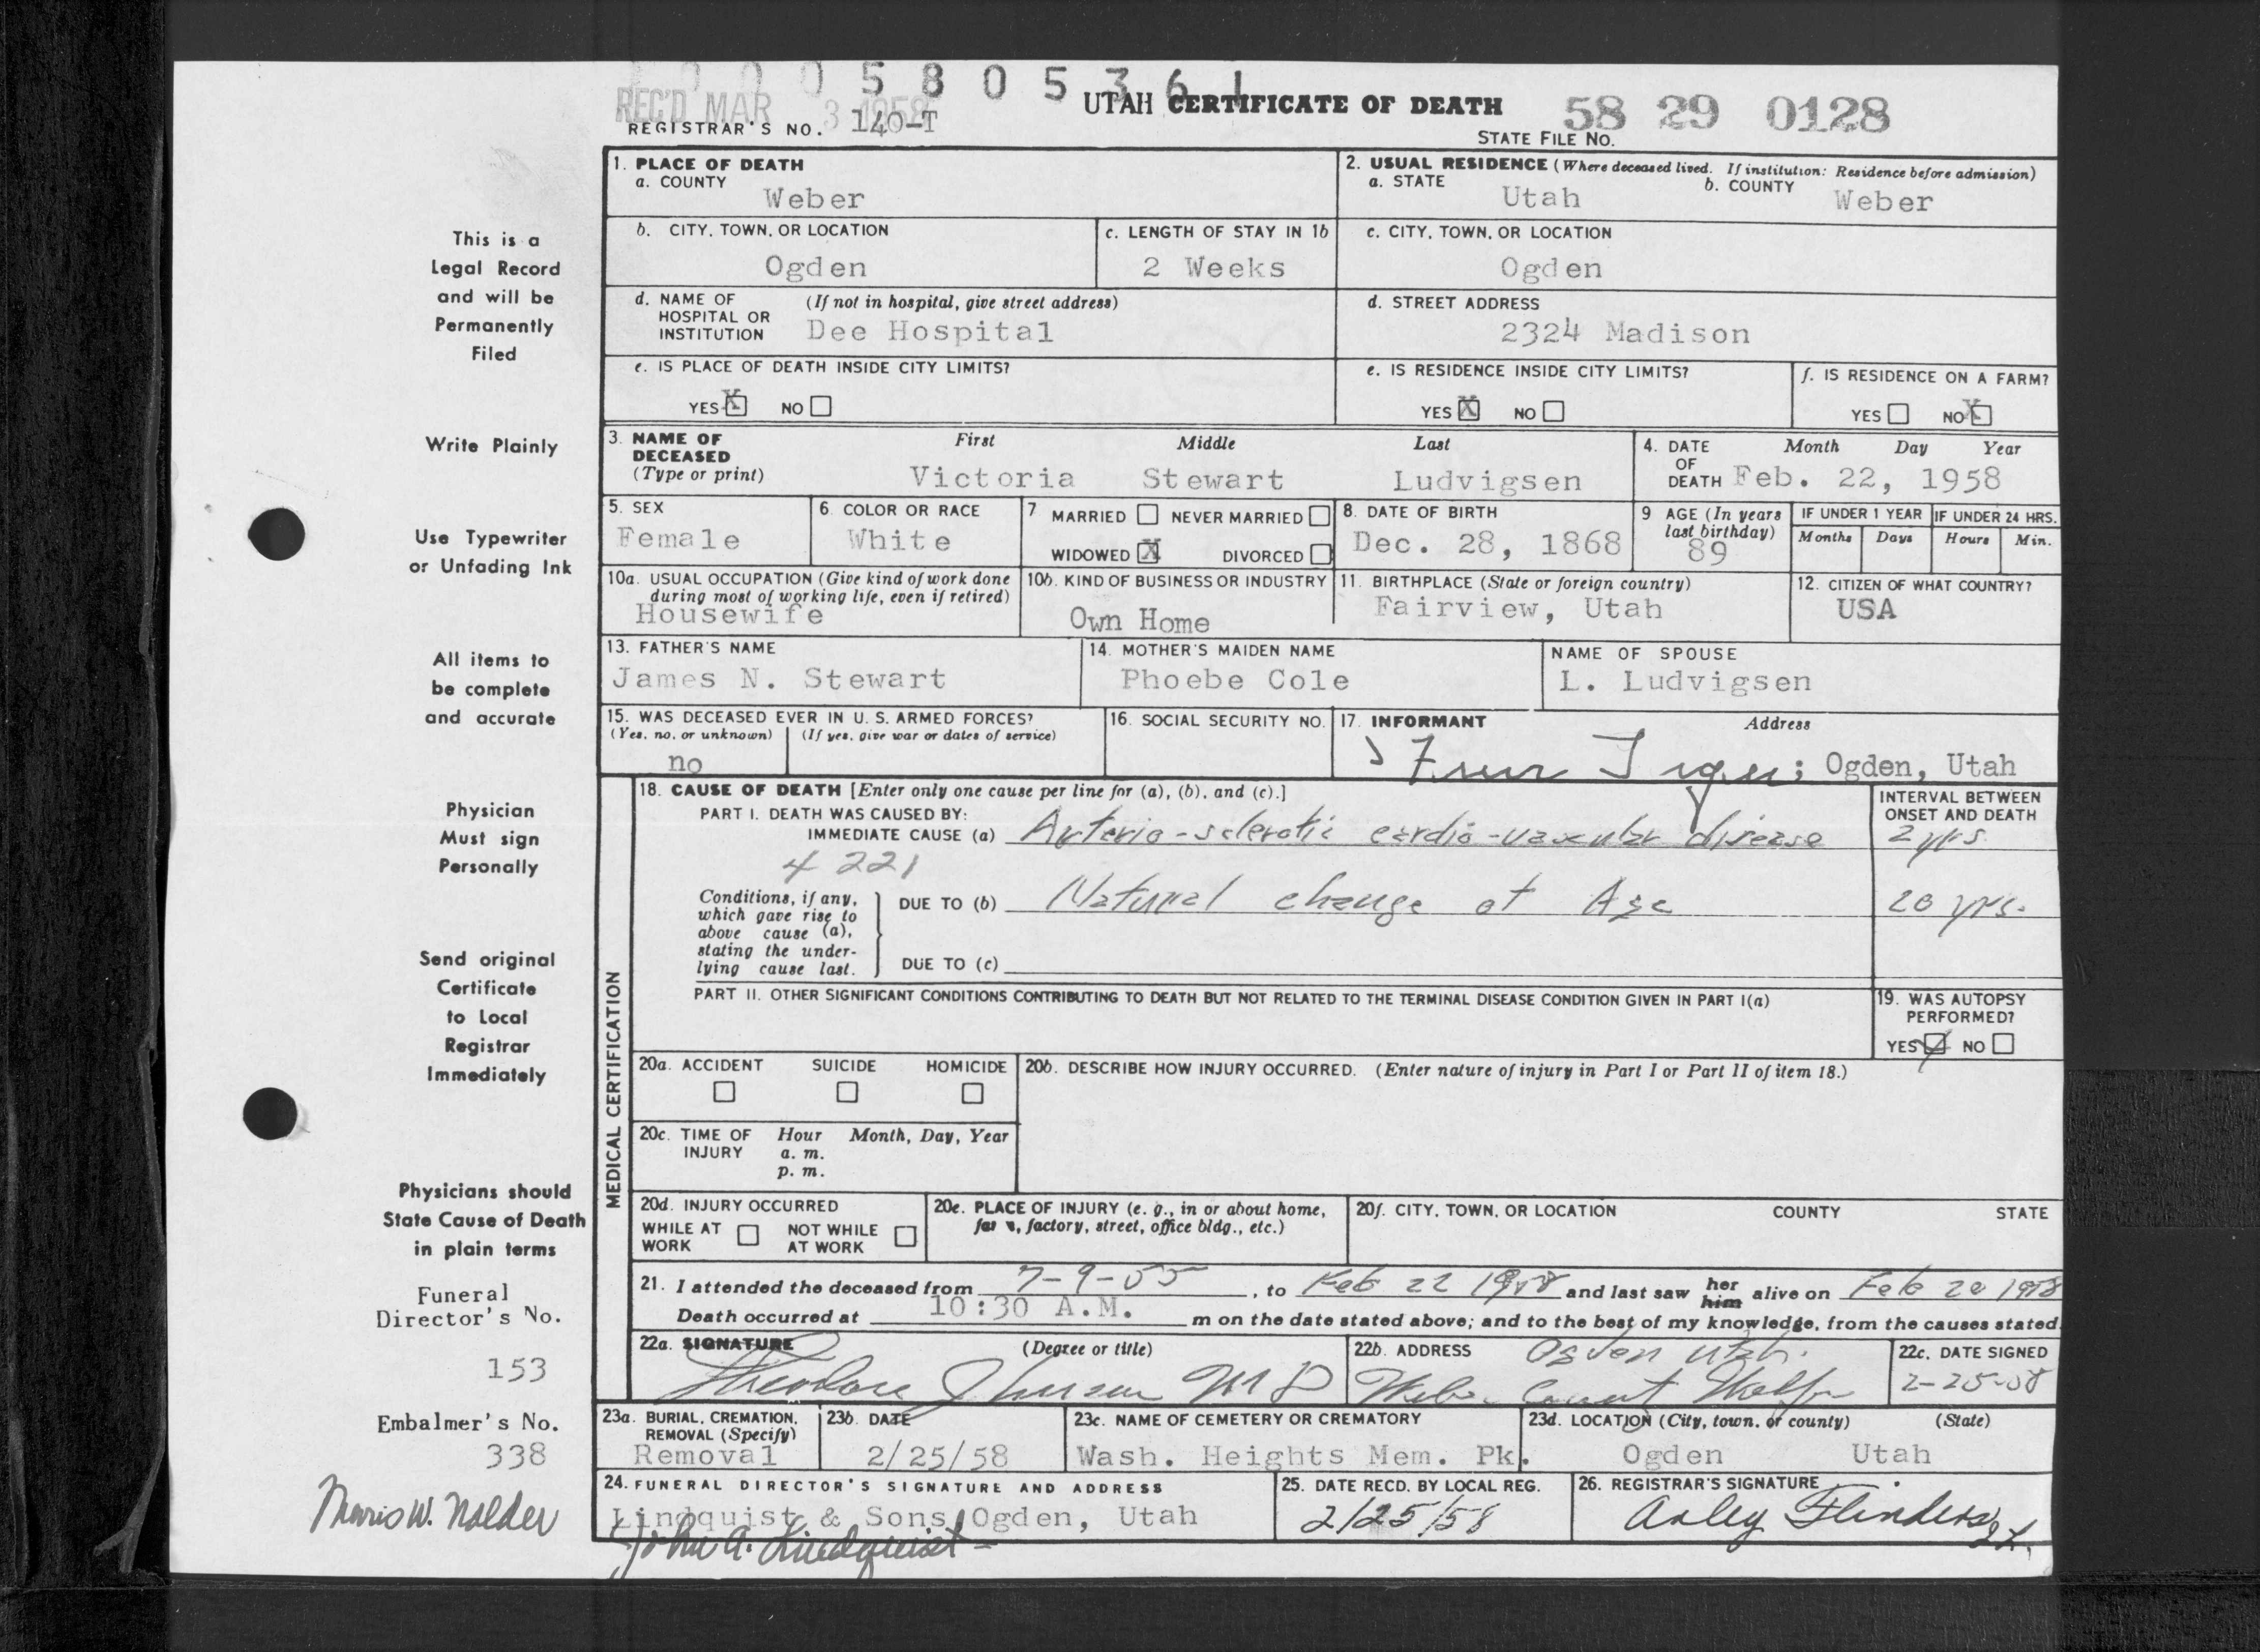 5 8 0 5 3 6 1
REC'D MAR 3 1958
REGISTRAR'S NO. 140-T
UTAH CERTIFICATE OF DEATH
58 29 0128
STATE FILE NO.
1. PLACE OF DEATH
a. COUNTY
Weber
2. USUAL RESIDENCE (Where deceased lived. If institution: Residence before admission)
a. STATE
Utah
b. COUNTY
Weber
b. CITY, TOWN, OR LOCATION
Ogden
c. LENGTH OF STAY IN 1b
2 Weeks
c. CITY, TOWN, OR LOCATION
Ogden
d. NAME OF HOSPITAL OR INSTITUTION
(If not in hospital, give street address)
Dee Hospital
d. STREET ADDRESS
2324 Madison
e. IS PLACE OF DEATH INSIDE CITY LIMITS?
YES X NO
e. IS RESIDENCE INSIDE CITY LIMITS?
YES X NO
f. IS RESIDENCE ON A FARM?
YES NO X
3. NAME OF DECEASED
(Type or print)
First Middle Last
Victoria Stewart Ludvigsen
4. DATE OF DEATH
Month Day Year
Feb. 22, 1958
5. SEX
Female
6. COLOR OR RACE
White
7 MARRIED NEVER MARRIED
WIDOWED X DIVORCED
8. DATE OF BIRTH
Dec. 28, 1868
9 AGE (In years last birthday)
89
IF UNDER 1 YEAR
Months Days
IF UNDER 24 HRS.
Hours Min.
10a. USUAL OCCUPATION (Give kind of work done during most of working life, even if retired)
Housewife
10b. KIND OF BUSINESS OR INDUSTRY
Own Home
11. BIRTHPLACE (State or foreign country)
Fairview, Utah
12. CITIZEN OF WHAT COUNTRY?
USA
13. FATHER'S NAME
James N. Stewart
14. MOTHER'S MAIDEN NAME
Phoebe Cole
NAME OF SPOUSE
L. Ludvigsen
15. WAS DECEASED EVER IN U. S. ARMED FORCES?
(Yes, no, or unknown) (If yes, give war or dates of service)
no
16. SOCIAL SECURITY NO.
17. INFORMANT Address
; Ogden, Utah
MEDICAL CERTIFICATION
18. CAUSE OF DEATH [Enter only one cause per line for (a), (b), and (c).]
PART I. DEATH WAS CAUSED BY:
IMMEDIATE CAUSE (a) Arterio-sclerotic cardio-vascular disease
4 221
INTERVAL BETWEEN ONSET AND DEATH
2 yrs
Conditions, if any, which gave rise to above cause (a), stating the underlying cause last.
DUE TO (b) Natural change of Age
20 yrs.
DUE TO (c)
PART II. OTHER SIGNIFICANT CONDITIONS CONTRIBUTING TO DEATH BUT NOT RELATED TO THE TERMINAL DISEASE CONDITION GIVEN IN PART I(a)
19. WAS AUTOPSY PERFORMED?
YES NO
20a. ACCIDENT SUICIDE HOMICIDE
20b. DESCRIBE HOW INJURY OCCURRED. (Enter nature of injury in Part I or Part II of item 18.)
20c. TIME OF INJURY
Hour Month, Day, Year
a. m.
p. m.
20d. INJURY OCCURRED
WHILE AT WORK
NOT WHILE AT WORK
20e. PLACE OF INJURY (e. g., in or about home, farm, factory, street, office bldg., etc.)
20f. CITY, TOWN, OR LOCATION COUNTY STATE
21. I attended the deceased from 7-9-55, to Feb 22 1958 and last saw her him alive on Feb 20 1958
Death occurred at 10:30 A.M. m on the date stated above; and to the best of my knowledge, from the causes stated.
22a. SIGNATURE (Degree or title)
Theodore MD
22b. ADDRESS
Ogden Utah.
22c. DATE SIGNED
2-25-58
23a. BURIAL, CREMATION, REMOVAL (Specify)
Removal
23b. DATE
2/25/58
23c. NAME OF CEMETERY OR CREMATORY
Wash. Heights Mem. Pk.
23d. LOCATION (City, town, or county) (State)
Ogden Utah
24. FUNERAL DIRECTOR'S SIGNATURE AND ADDRESS
Lindquist & Sons, Ogden, Utah
John A. Lindquist
25. DATE RECD. BY LOCAL REG.
2/25/58
26. REGISTRAR'S SIGNATURE
Arley Flinders
This is a
Legal Record
and will be
Permanently
Filed
Write Plainly
Use Typewriter
or Unfading Ink
All items to
be complete
and accurate
Physician
Must sign
Personally
Send original
Certificate
to Local
Registrar
Immediately
Physicians should
State Cause of Death
in plain terms
Funeral
Director's No.
153
Embalmer's No.
338
W. Nalder